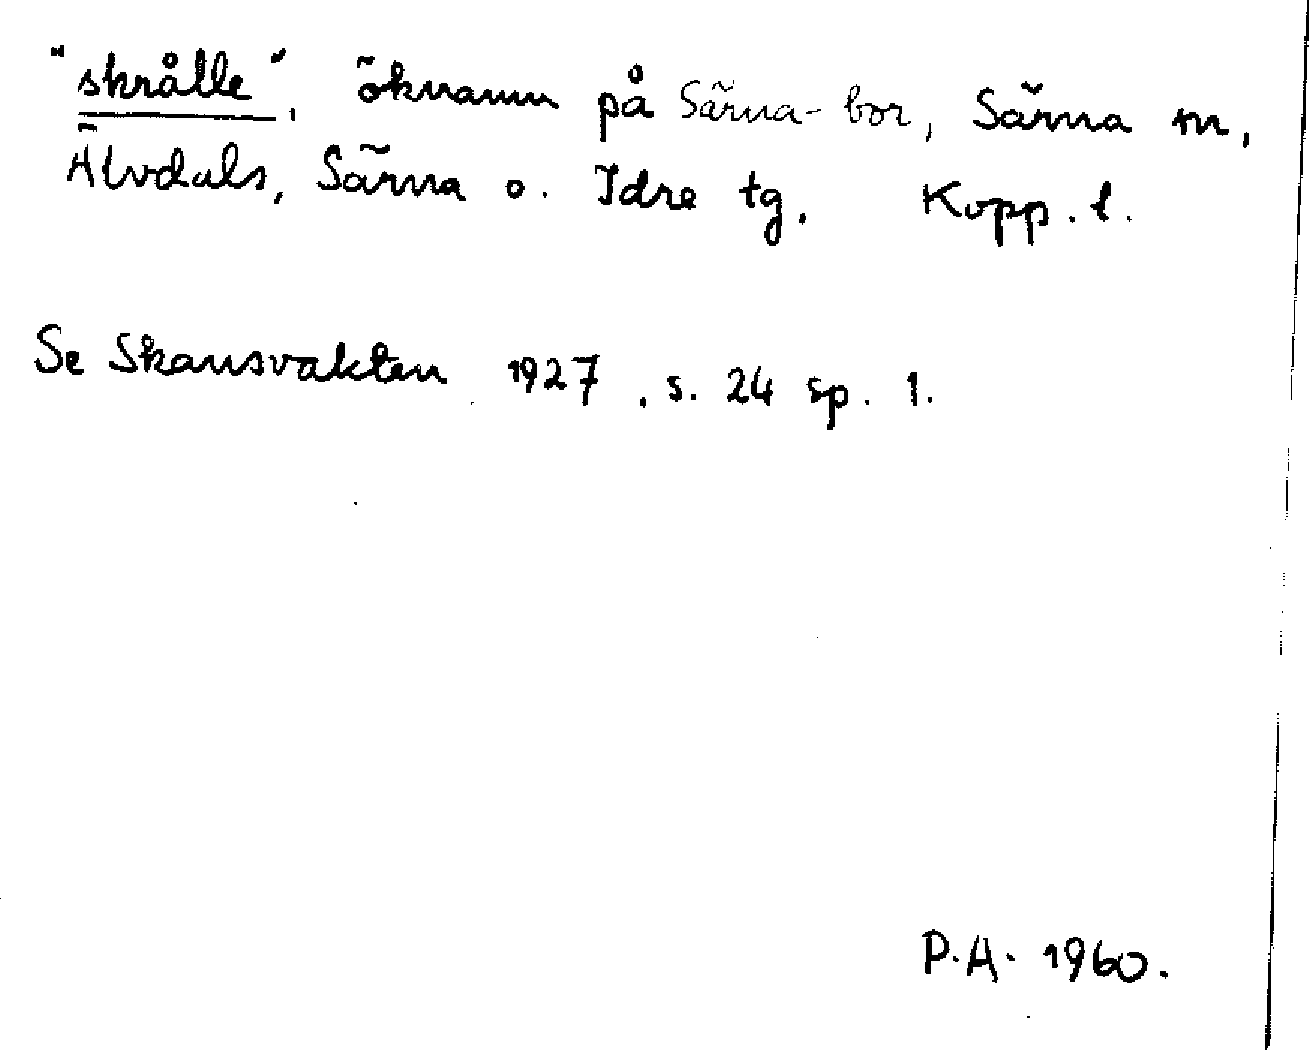 "skrålle", öknamn på Särna-bor, Särna sn,
Älvdals, Särna o. Idre tg. Kopp. l.
Se Skansvakten 1927, s. 24 sp. 1.
P.A. 1960.